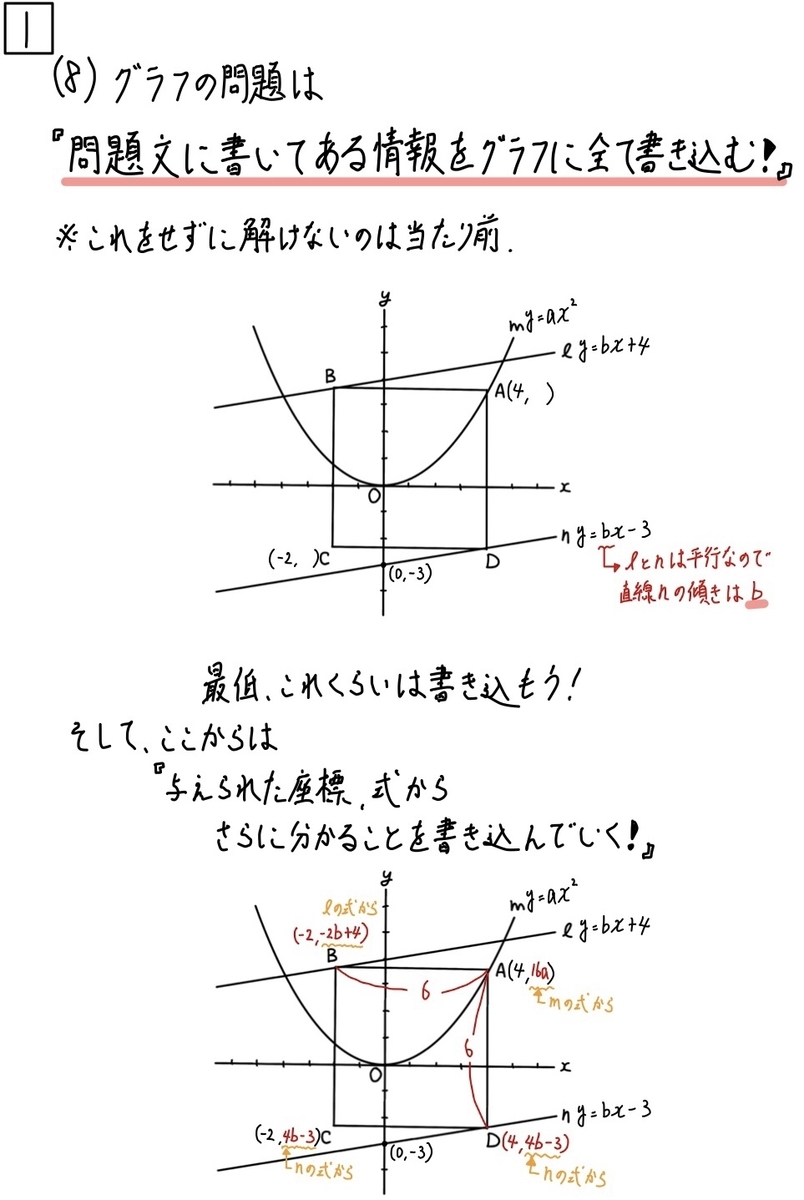 1
(8) グラフの問題は
『問題文に書いてある情報をグラフに全て書き込む!』
※これをせずに解けないのは当たり前.
y
m y=ax²
l y=bx+4
B
A(4, )
O
x
n y=bx-3
(-2, )C
(0,-3)
D
lとnは平行なので
直線nの傾きはb
最低、これくらいは書き込もう!
そして、ここからは
『与えられた座標、式から
さらに分かることを書き込んでいく!』
y
m y=ax²
lの式から
l y=bx+4
(-2,-2b+4)
B
A(4,16a)
6
mの式から
6
O
x
n y=bx-3
(-2,4b-3)C
(0,-3)
D(4,4b-3)
nの式から
nの式から